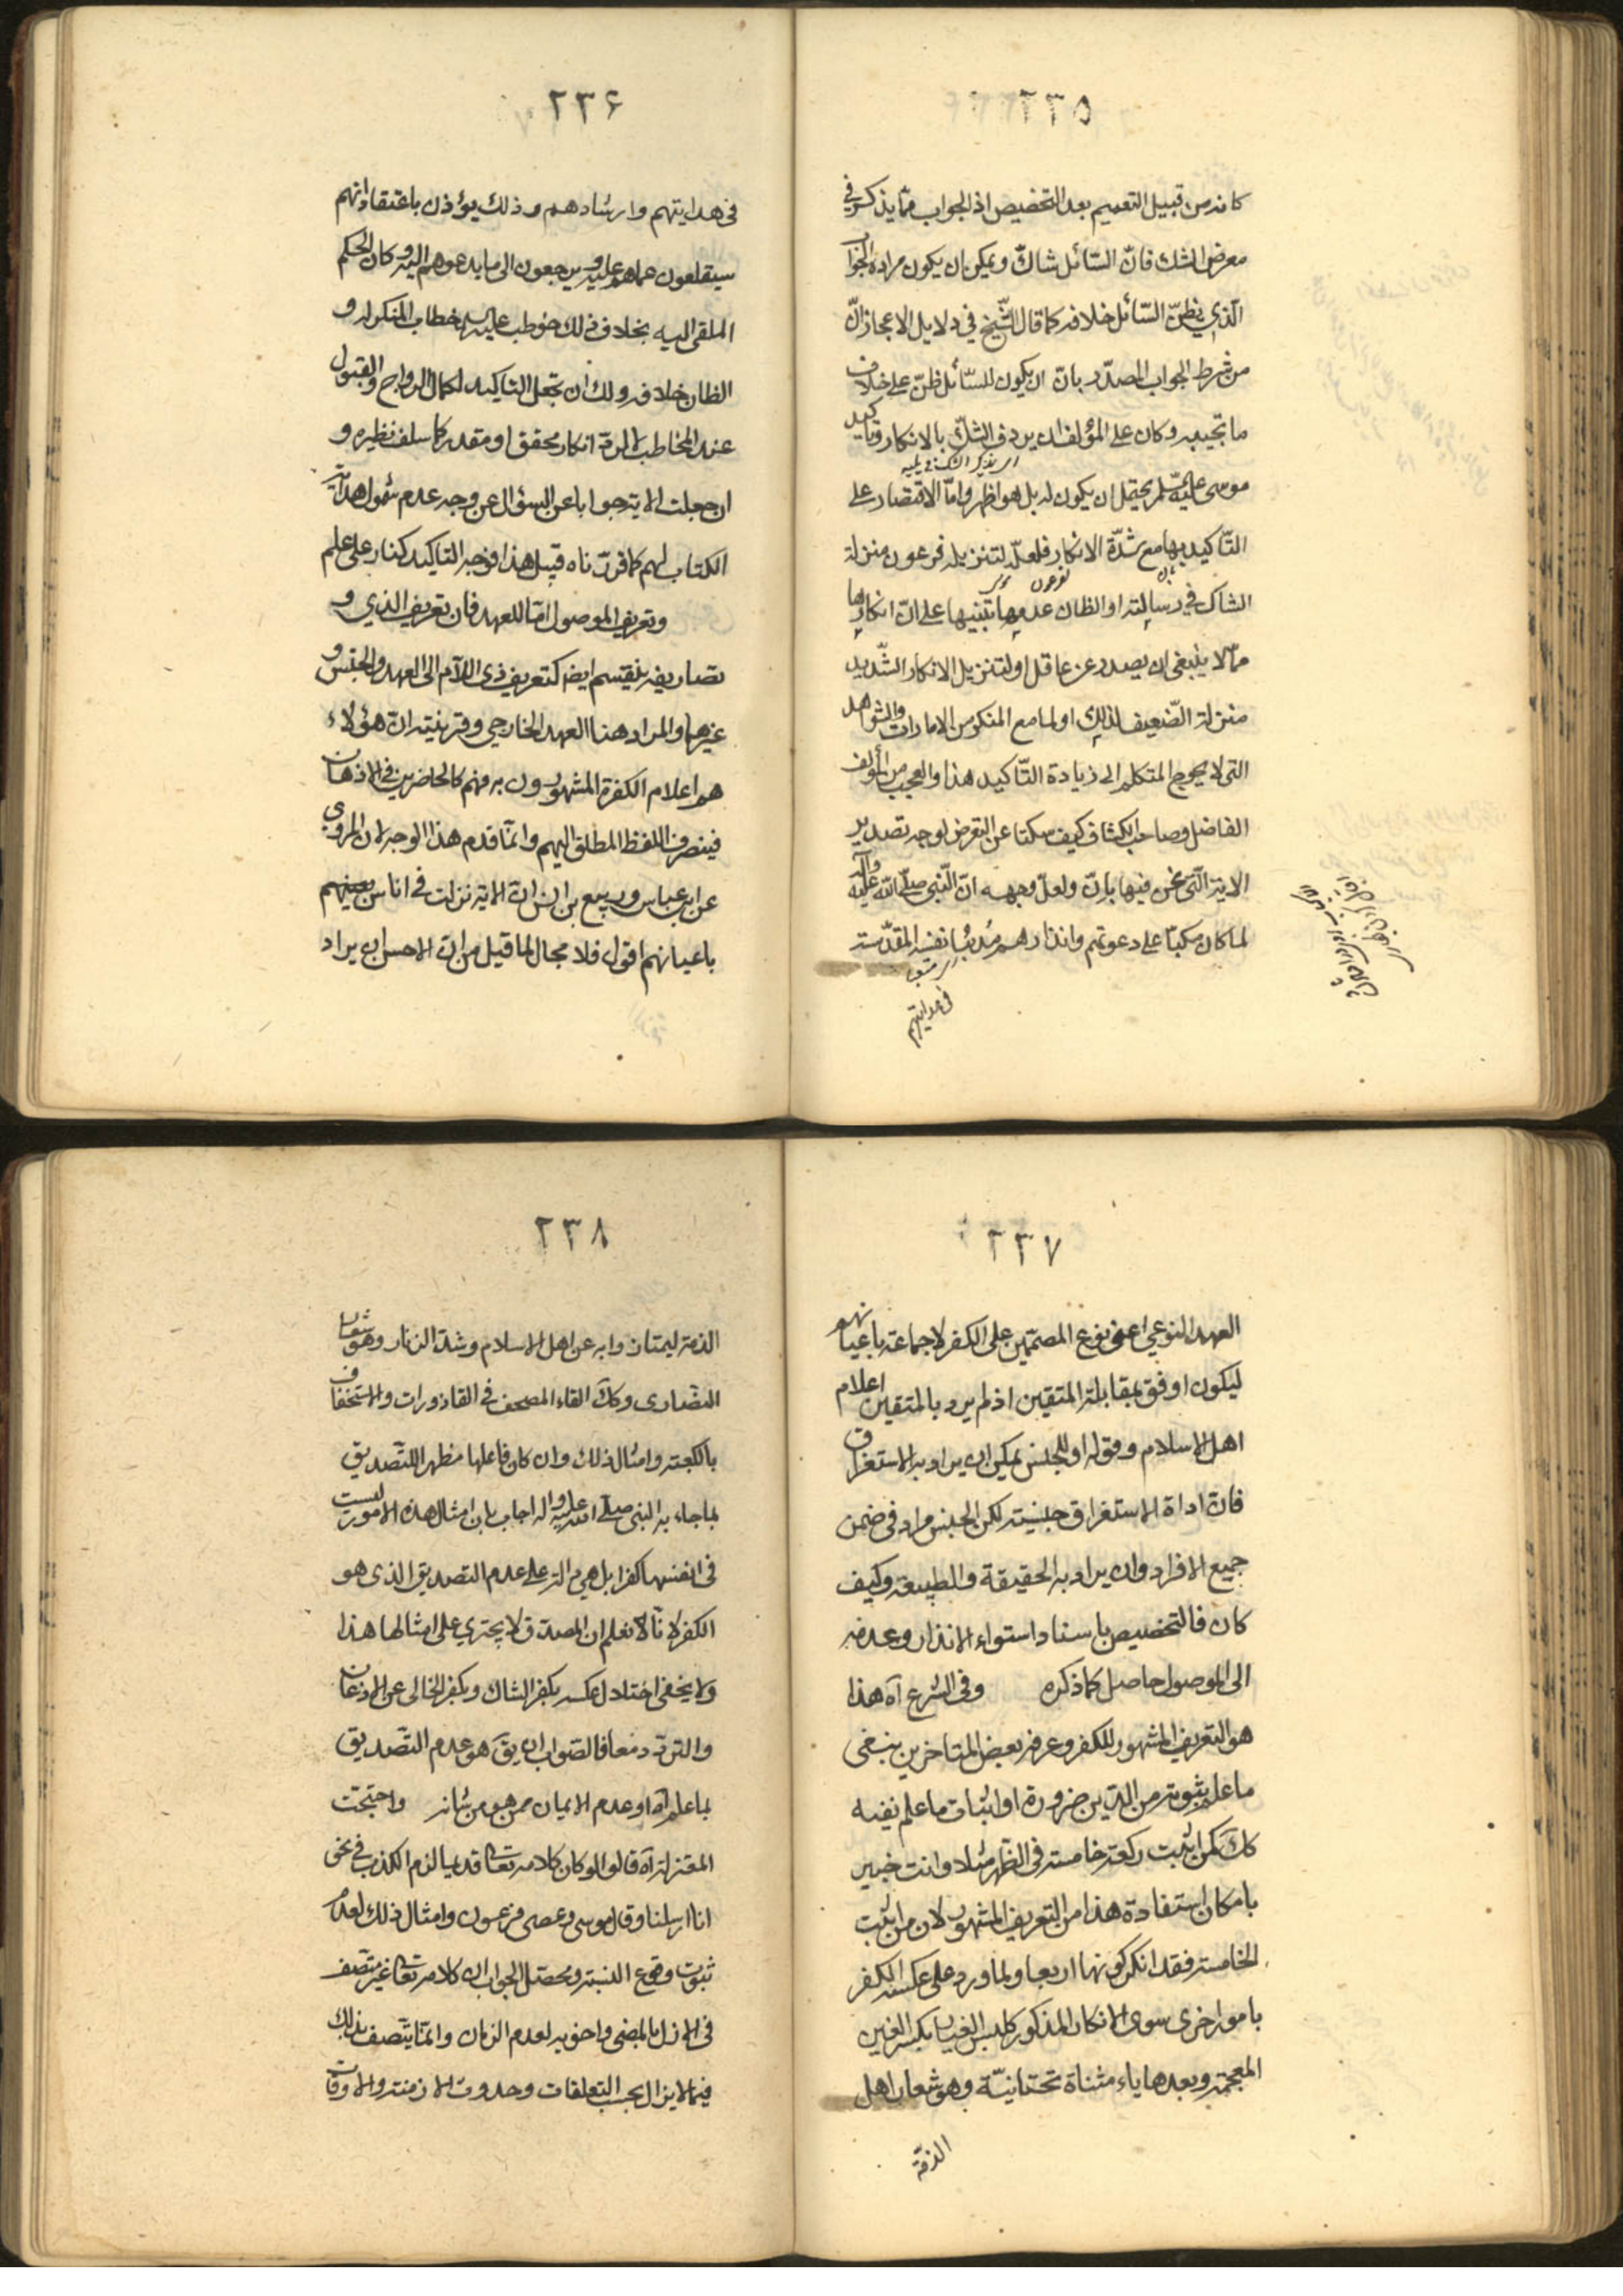 ٢٣٥
كانه من قبيل التعميم بعد التخصيص اذ الجواب ممّا يذكر في
معرض الشك فانّ السّائل شاكّ ويمكن ان يكون مراده الجواب
الّذي يظنّ السّائل خلافه كما قال الشّيخ في دلايل الاعجاز انّ
من شرط الجواب المصدّر بانّ ان يكون للسّائل ظنّ على خلاف
ما تجيبه وكان على المؤلف ان يردف الشكّ بالانكار وتاكيد
موسى علیه السّلم يحتمل ان يكون له بل هو اظهر وامّا الاقتصار على
التّاكيد بها مع شدّة الانكار فلعلّه لتنزيله فرعون منزلة
الشاك في رسالته او الظان عدمها تنبيها على انّ انكارها
ممّا لا ينبغى ان يصدر عن عاقل او لتنزيل الانكار الشّديد
منزلة الضّعيف لذلك او لما مع المنكر من الامارات والشواهد
التى لا يحوج المتكلم الى زيادة التّاكيد هذا والعجب من المؤلف
الفاضل وصاحب الكشاف كيف سكتا عن التعرض لوجه تصدير
الاية الّتى نحن فيها بانّ ولعلّ وجهه انّ النّبى صلّى الله عليه وآله
لما كان مكبّا على دعوتهم وانذارهم مُدئبًا نفسه المقدّسة
فى هدايتهم
٢٣۶
فى هدايتهم وارشادهم وذلك يؤذن باعتقاد انهم
سيقلعون عما هم عليه ويرجعون الى ما يدعوهم اليه وكان الحكم
الملقى اليه بخلاف ذلك خوطب عليه السلام خطاب المنكر له و
الظان خلافه ولك ان تجعل التاكيد لكمال الرواج والقبول
عند المخاطب لا لردّ انكار محقق او مقدر كما سلف نظيره و
ان جعلت الاية جوابا عن السؤال عن وجه عدم شمول هداية
الكتاب لهم كما قررناه قبيل هذا فوجه التاكيد كنار على علم
وتعريف الموصول امّا للعهد فان تعريف الذي و
تصاريفه ينقسم ايضا كتعريف ذى اللآم الى العهد والجنس و
غيرهما والمراد هنا العهد الخارجي وقرينته انّ هؤلاء
هم اعلام الكفرة المشهورون به فهم كالحاضرين فى الاذهان
فينصرف اللفظ المطلق اليهم وانّما قدم هذا الوجه لان المروي
عن ابن عباس وربيع بن انس انّ الاية نزلت فى اناس بعينهم
باعيانهم اقول فلا مجال لما قيل من انّ الاحسن ان يراد
٢٣٧
العهد النوعي اعنى نوع المصمّمين على الكفر لا جماعة باعيانهم
ليكون اوفق بمقابلة المتقين اذ لم يرد بالمتقين اعلام
اهل الاسلام وقوله او للجنس يمكن ان يراد به الاستغراق
فانّ اداة الاستغراق جنسيّة لكن الجنس مراد فى ضمن
جميع الافراد وان يراد به الحقيقة والطبيعة وكيف
كان فالتخصيص باسناد استواء الانذار وعدمه
الى الموصول حاصل كما ذكره وفى الشرع آه هذا
هو التعريف المشهور للكفر وعرفه بعض المتاخرين بنفى
ما علم ثبوته من الدّين ضرورة او اثبات ما علم نفيه
كك كمن اثبت ركعة خامسة فى الظهر مثلا وانت خبير
بامكان استفادة هذا من التعريف المشهور لان من اثبت
الخامسة فقد انكر كونها اربعا ولما ورد على عكسه الكفر
بامور اخرى سوى الانكار المذكور كلبس الغيار بكسر الغين
المعجمة وبعدها ياء مثناة تحتانيّة وهو شعار اهل
الذمّة
٢٣٨
الذمة ليمتازوا به عن اهل الاسلام وشدّ الزنار وهو شعار
النصارى وكك القاء المصحف فى القاذورات والاستخفاف
بالكعبة وامثال ذلك وان كان فاعلها مظهرا للتّصديق
بما جاء به النبى صلّى الله عليه واله اجاب بان امثال هذه الامور ليست
فى انفسها كفرا بل هى دالة على عدم التصديق الذى هو
الكفر لانّا نعلم ان المصدّق لا يجتري على امثالها هذا
ولا يخفى اختلال عكسه بكفر الشاك وبكفر الخالى عن الاذعان
والتردّد معا فالصّواب ان يقَ هو عدم التّصديق
بما علم آه او عدم الايمان ممن هو من شانه واحتجّت
المعتزلة آه قالوا لو كان كلامه تعالى قديما لزم الكذب فى نحو
انا ارسلنا وقال موسى وعصى فرعون وامثال ذلك لعدم
ثبوت وقوع النسبة ومحصّل الجواب ان كلامه تعالى غير متّصف
فى الازل بالمضى واخويه لعدم الزمان وانّما يتّصف بذلك
فيما لا يزال بحسب التعلقات وحدوث الازمنة والاوقات